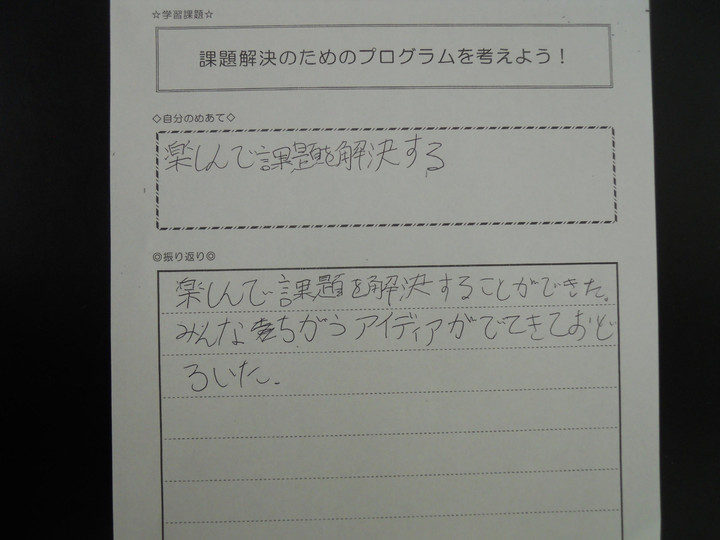 ☆学習課題☆
課題解決のためのプログラムを考えよう！
◇自分のめあて◇
楽しんで課題を解決する
◎振り返り◎
楽しんで課題を解決することができた。
みんなちがうアイディアがでてきておど
ろいた。